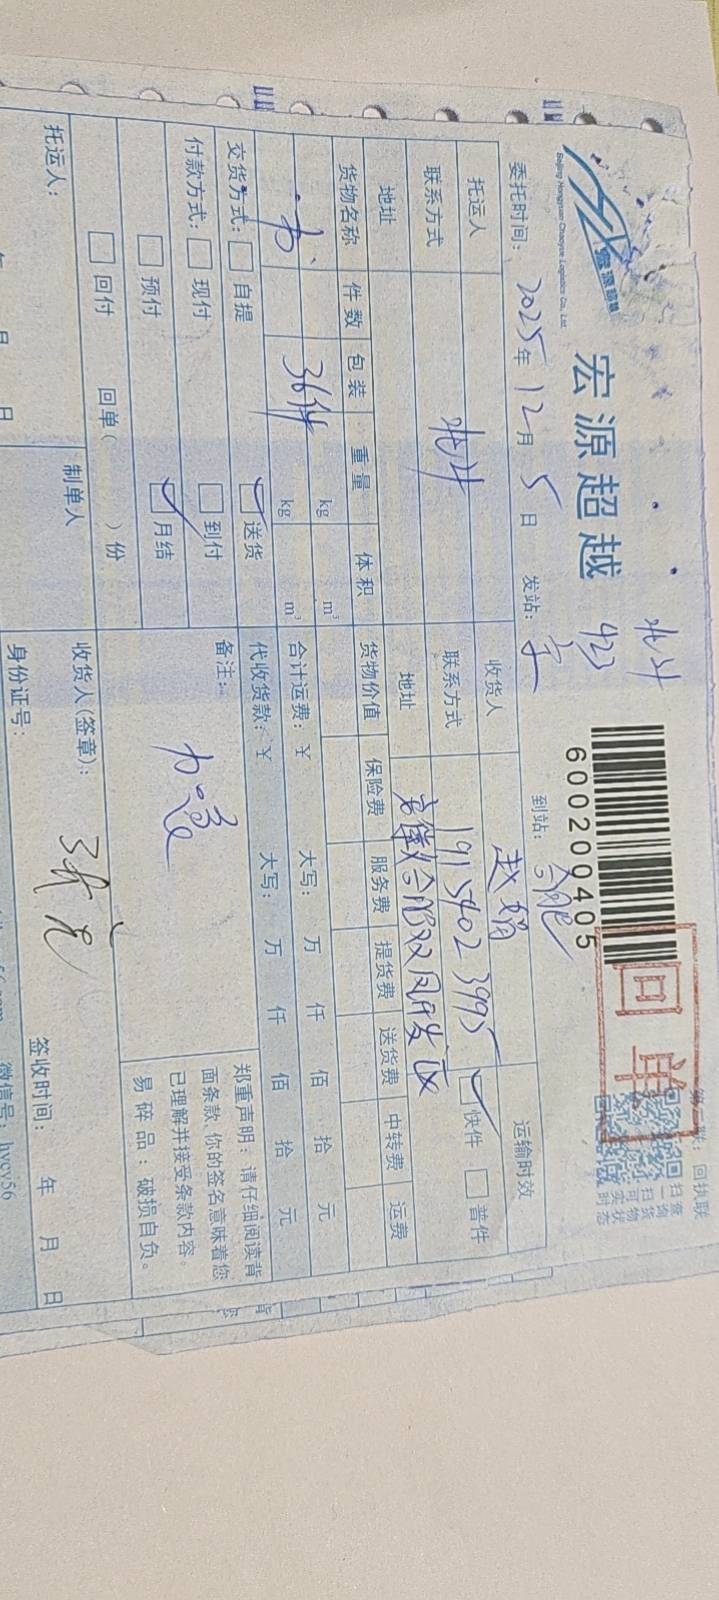 第二联：回执联
宏源超越
Beijing Hongyuan Chaoyue Logistics Co., Ltd.
北斗
423
600200405
回单
扫一扫可实时
查询货物状态
委托时间： 2025年 12月 5日 发站： 京 到站： 合肥
托运人 北斗 收货人 赵娟 运输时效
联系方式 联系方式 19154023995 快件 普件
地址 地址 安徽合肥双凤开发区
货物名称 件数 包装 重量 体积 货物价值 保险费 服务费 提货费 送货费 中转费 运费
书 36件 kg m³
kg m³
合计运费：￥ 大写： 万 仟 佰 拾 元
交货方式： 自提 送货 代收货款：￥ 大写： 万 仟 佰 拾 元
付款方式： 现付 到付 备注：
预付 月结
回付 回单（ ）份
郑重声明：请仔细阅读背
面条款，你的签名意味着您
已理解并接受条款内容。
易碎品：破损自负。
托运人： 制单人 收货人（签章）： 签收时间： 年 月 日
年 月 日 身份证号：
微信号：hycy56